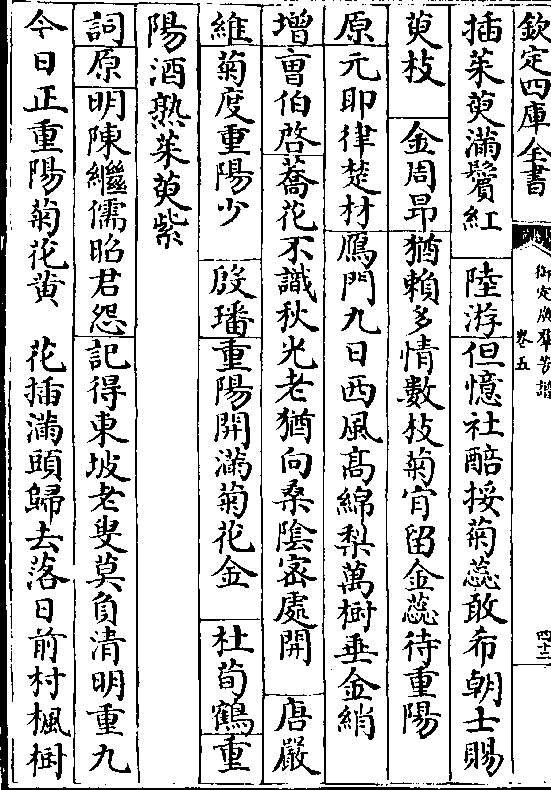 欽定四庫全書
御定廣羣芳譜
卷五
四十二
插茱萸滿鬢紅 陸游但憶社醅挼菊蕊敢希朝士賜
萸枝 金周昂猶賴多情數枝菊肯留金蕊待重陽
原元耶律楚材鴈門九日西風髙綿梨萬樹垂金綃
增曹伯啓蕎花不識秋光老猶向桑陰宻處開 唐嚴
維菊度重陽少 殷璠重陽開滿菊花金 杜荀鶴重
陽酒熟茱萸紫
詞原明陳繼儒昭君怨記得東坡老叟莫負清明重九
今日正重陽菊花黄 花插滿頭歸去落日前村楓樹